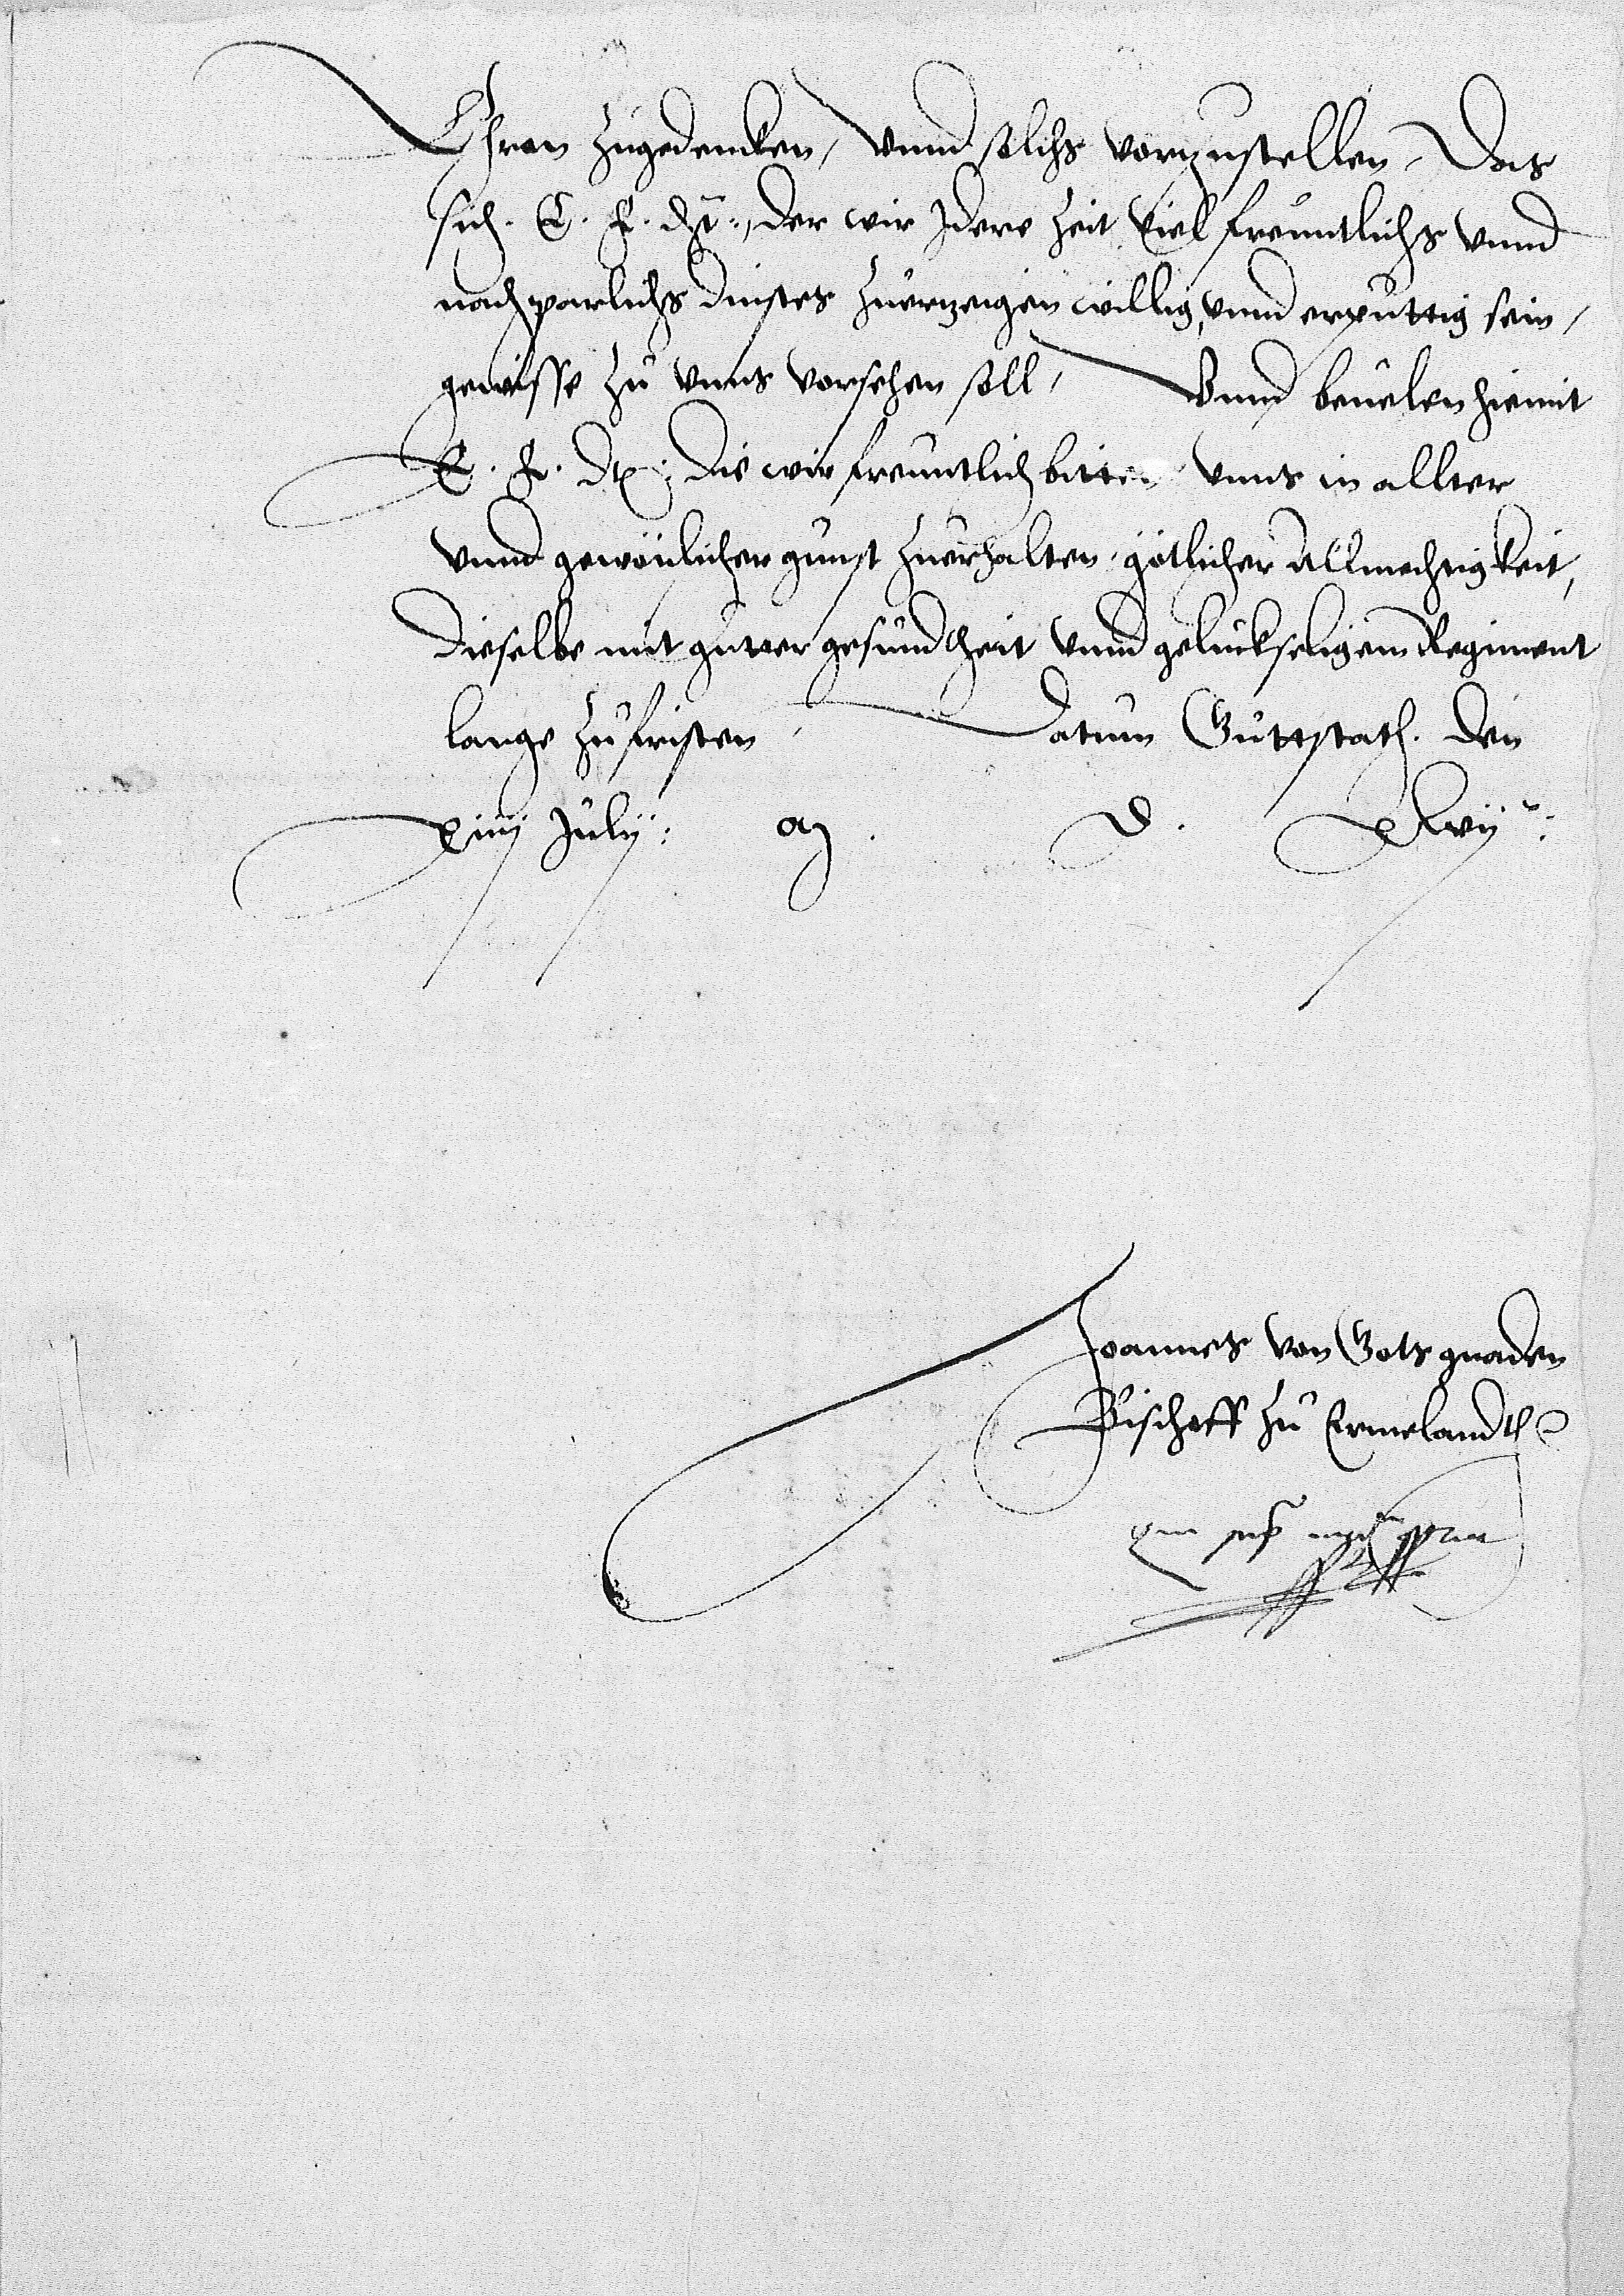 Ehren zugedencken, vnnd solichs vorzustellen, Das
sich. E. F. dt:, der wir Idere Zeit viel freuntlichs vnnd
nachparlichs dinstes zuerzeigen willig, vnnd erputtig sein,
gewisse zu vnns vorsehen soll, Vnnd beuelen hiemit
E. F. Dt: die wir freuntlich bitten vnns in allter
vnnd gewönlicher gunst zuerhalten, götlicher Allmechtigkeit,
Dieselbe mit gutter gesundtheit vnnd geluckseligem Regiment
lange zufristen, Datum Guttstath. den
xiiij Julij: A. D. xlvij:
Joannes von Gots gnaden
Bischoff zu Ermelandth